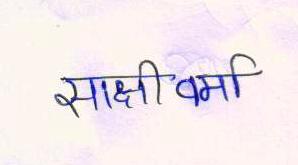 साक्षी वर्मा